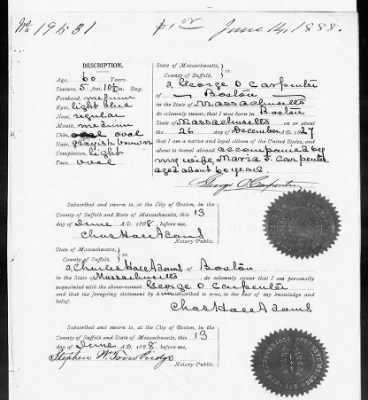 No 19531 June 14, 1888.
DESCRIPTION.
Age, 60 Years.
Stature, 5 feet, 10½ Eng.
Forehead, medium
Eyes, light blue
Nose, regular
Mouth, medium
Chin, oval
Hair, grayish brown
Complexion, light
Face, oval
State of Massachusetts,
County of Suffolk, ss.
I, George O Carpenter
of Boston
in the State of Massachusetts
do solemnly swear, that I was born in Boston
Massachusetts on or about
the 26 day of December, 1827
that I am a native and loyal citizen of the United States, and
about to travel abroad accompanied by
my wife, Maria F. Carpenter
aged about 60 years.
George O Carpenter
Subscribed and sworn to, at the City of Boston, in the
County of Suffolk and State of Massachusetts, this 13
day of June 1888 before me
Chas Hall Adams
Notary Public.
State of Massachusetts,
County of Suffolk, ss.
I, Charles Hall Adams of Boston
in the State of Massachusetts, do solemnly swear that I am personally
acquainted with the above-named George O Carpenter
and that the foregoing statement by him subscribed is true, to the best of my knowledge and
belief.
Chas Hall Adams
Subscribed and sworn to, at the City of Boston, in the
County of Suffolk and State of Massachusetts, this 13
day of June 1888 before me
Stephen W. Trowbridge
Notary Public.